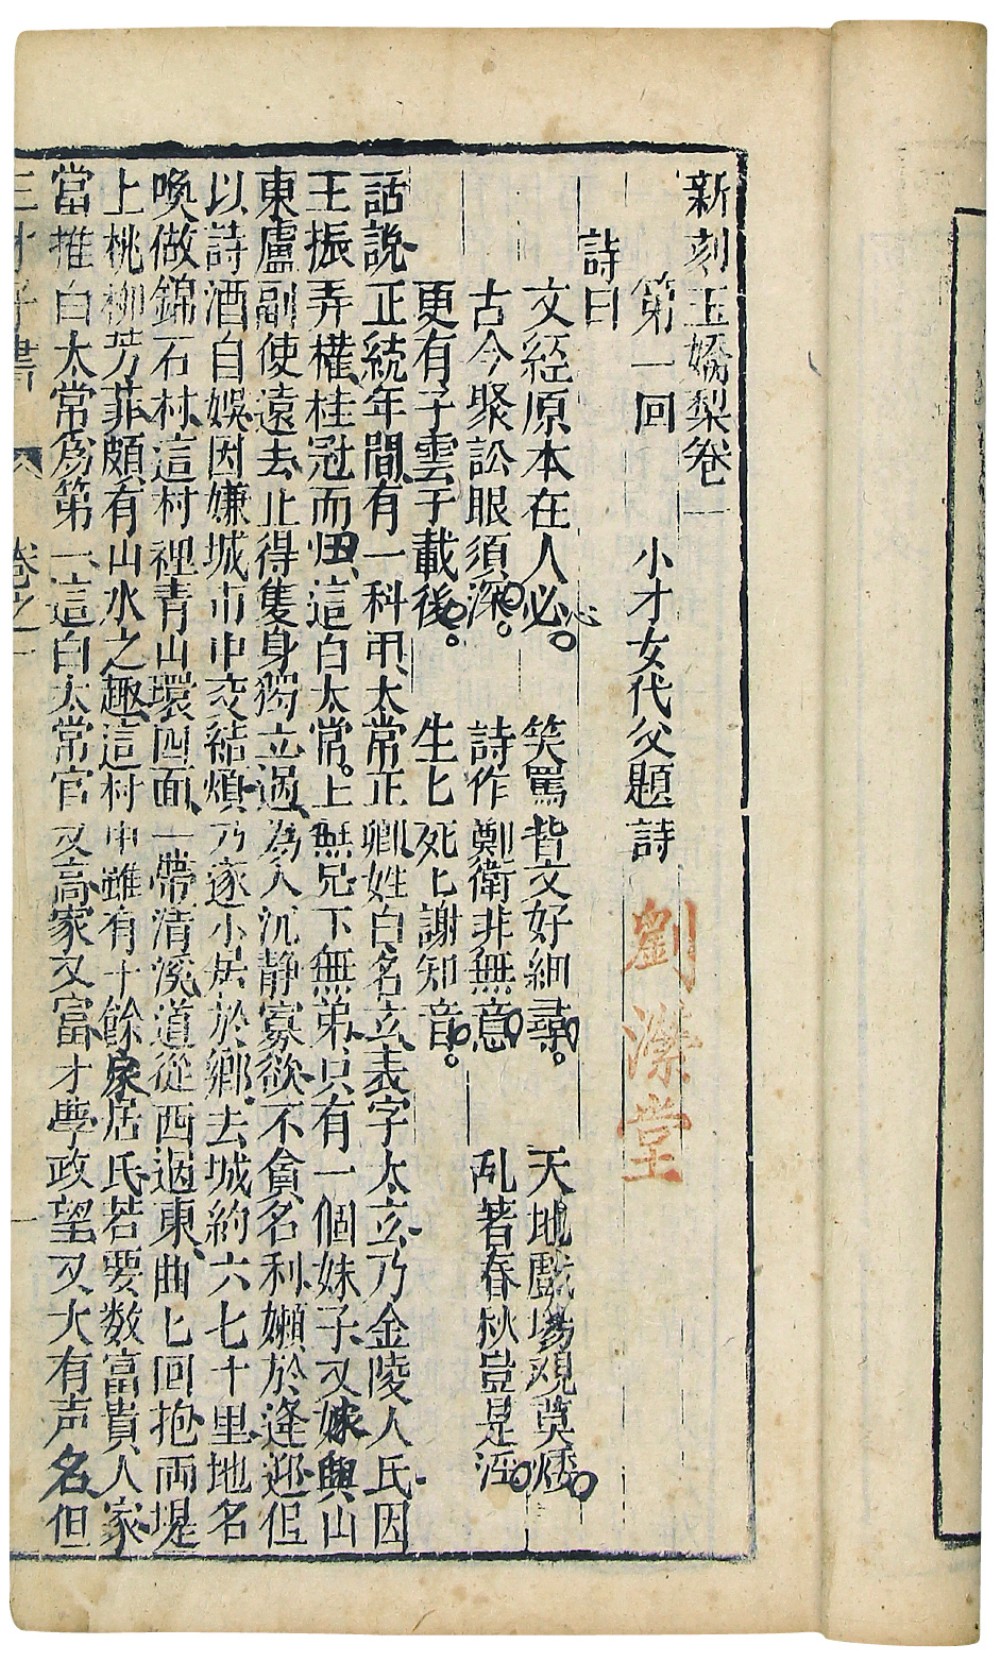 新刻玉嬌梨卷一
第一回　小才女代父題詩
劉濴堂
詩曰
文經原本在人心　笑罵皆文好細尋　天地戲場观莫矮
古今聚訟眼須深　詩作鄭衛非無意　乱著春秋豈是淫
更有子雲千載後　生匕死匕謝知音
話說正統年間有一科甲太常正卿姓白名玄表字太玄乃金陵人氏因
王振弄權桂冠而归這白太常上無兄下無弟只有一個妹子又嫁與山
東盧副使遠去止得隻身獨立過為人沉静寡欲不貪名利嬾於逢迎但
以詩酒自娛因嫌城市中交結煩乃逐小居於鄉去城約六七十里地名
喚做錦石村這村裡青山環四面一帶清溪道從西過東曲匕回抱兩堤
上桃柳芳菲頗有山水之趣這村中雖有千餘家居氏若要数富貴人家
當推白太常為第一這白太常官又高家又富才學政望又大有声名但
三才子書　卷之一　一